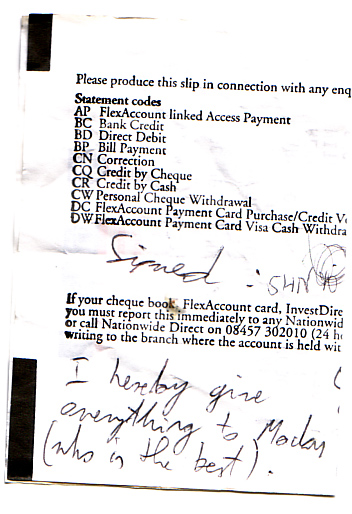 Please produce this slip in connection with any enq
Statement codes
AP FlexAccount linked Access Payment
BC Bank Credit
BD Direct Debit
BP Bill Payment
CN Correction
CQ Credit by Cheque
CR Credit by Cash
CW Personal Cheque Withdrawal
DC FlexAccount Payment Card Purchase/Credit V
DW FlexAccount Payment Card Visa Cash Withdra
Signed :
If your cheque book, FlexAccount card, InvestDire
you must report this immediately to any Nationwid
or call Nationwide Direct on 08457 302010 (24 h
writing to the branch where the account is held wit
I hereby give
everything to
(who is the best).